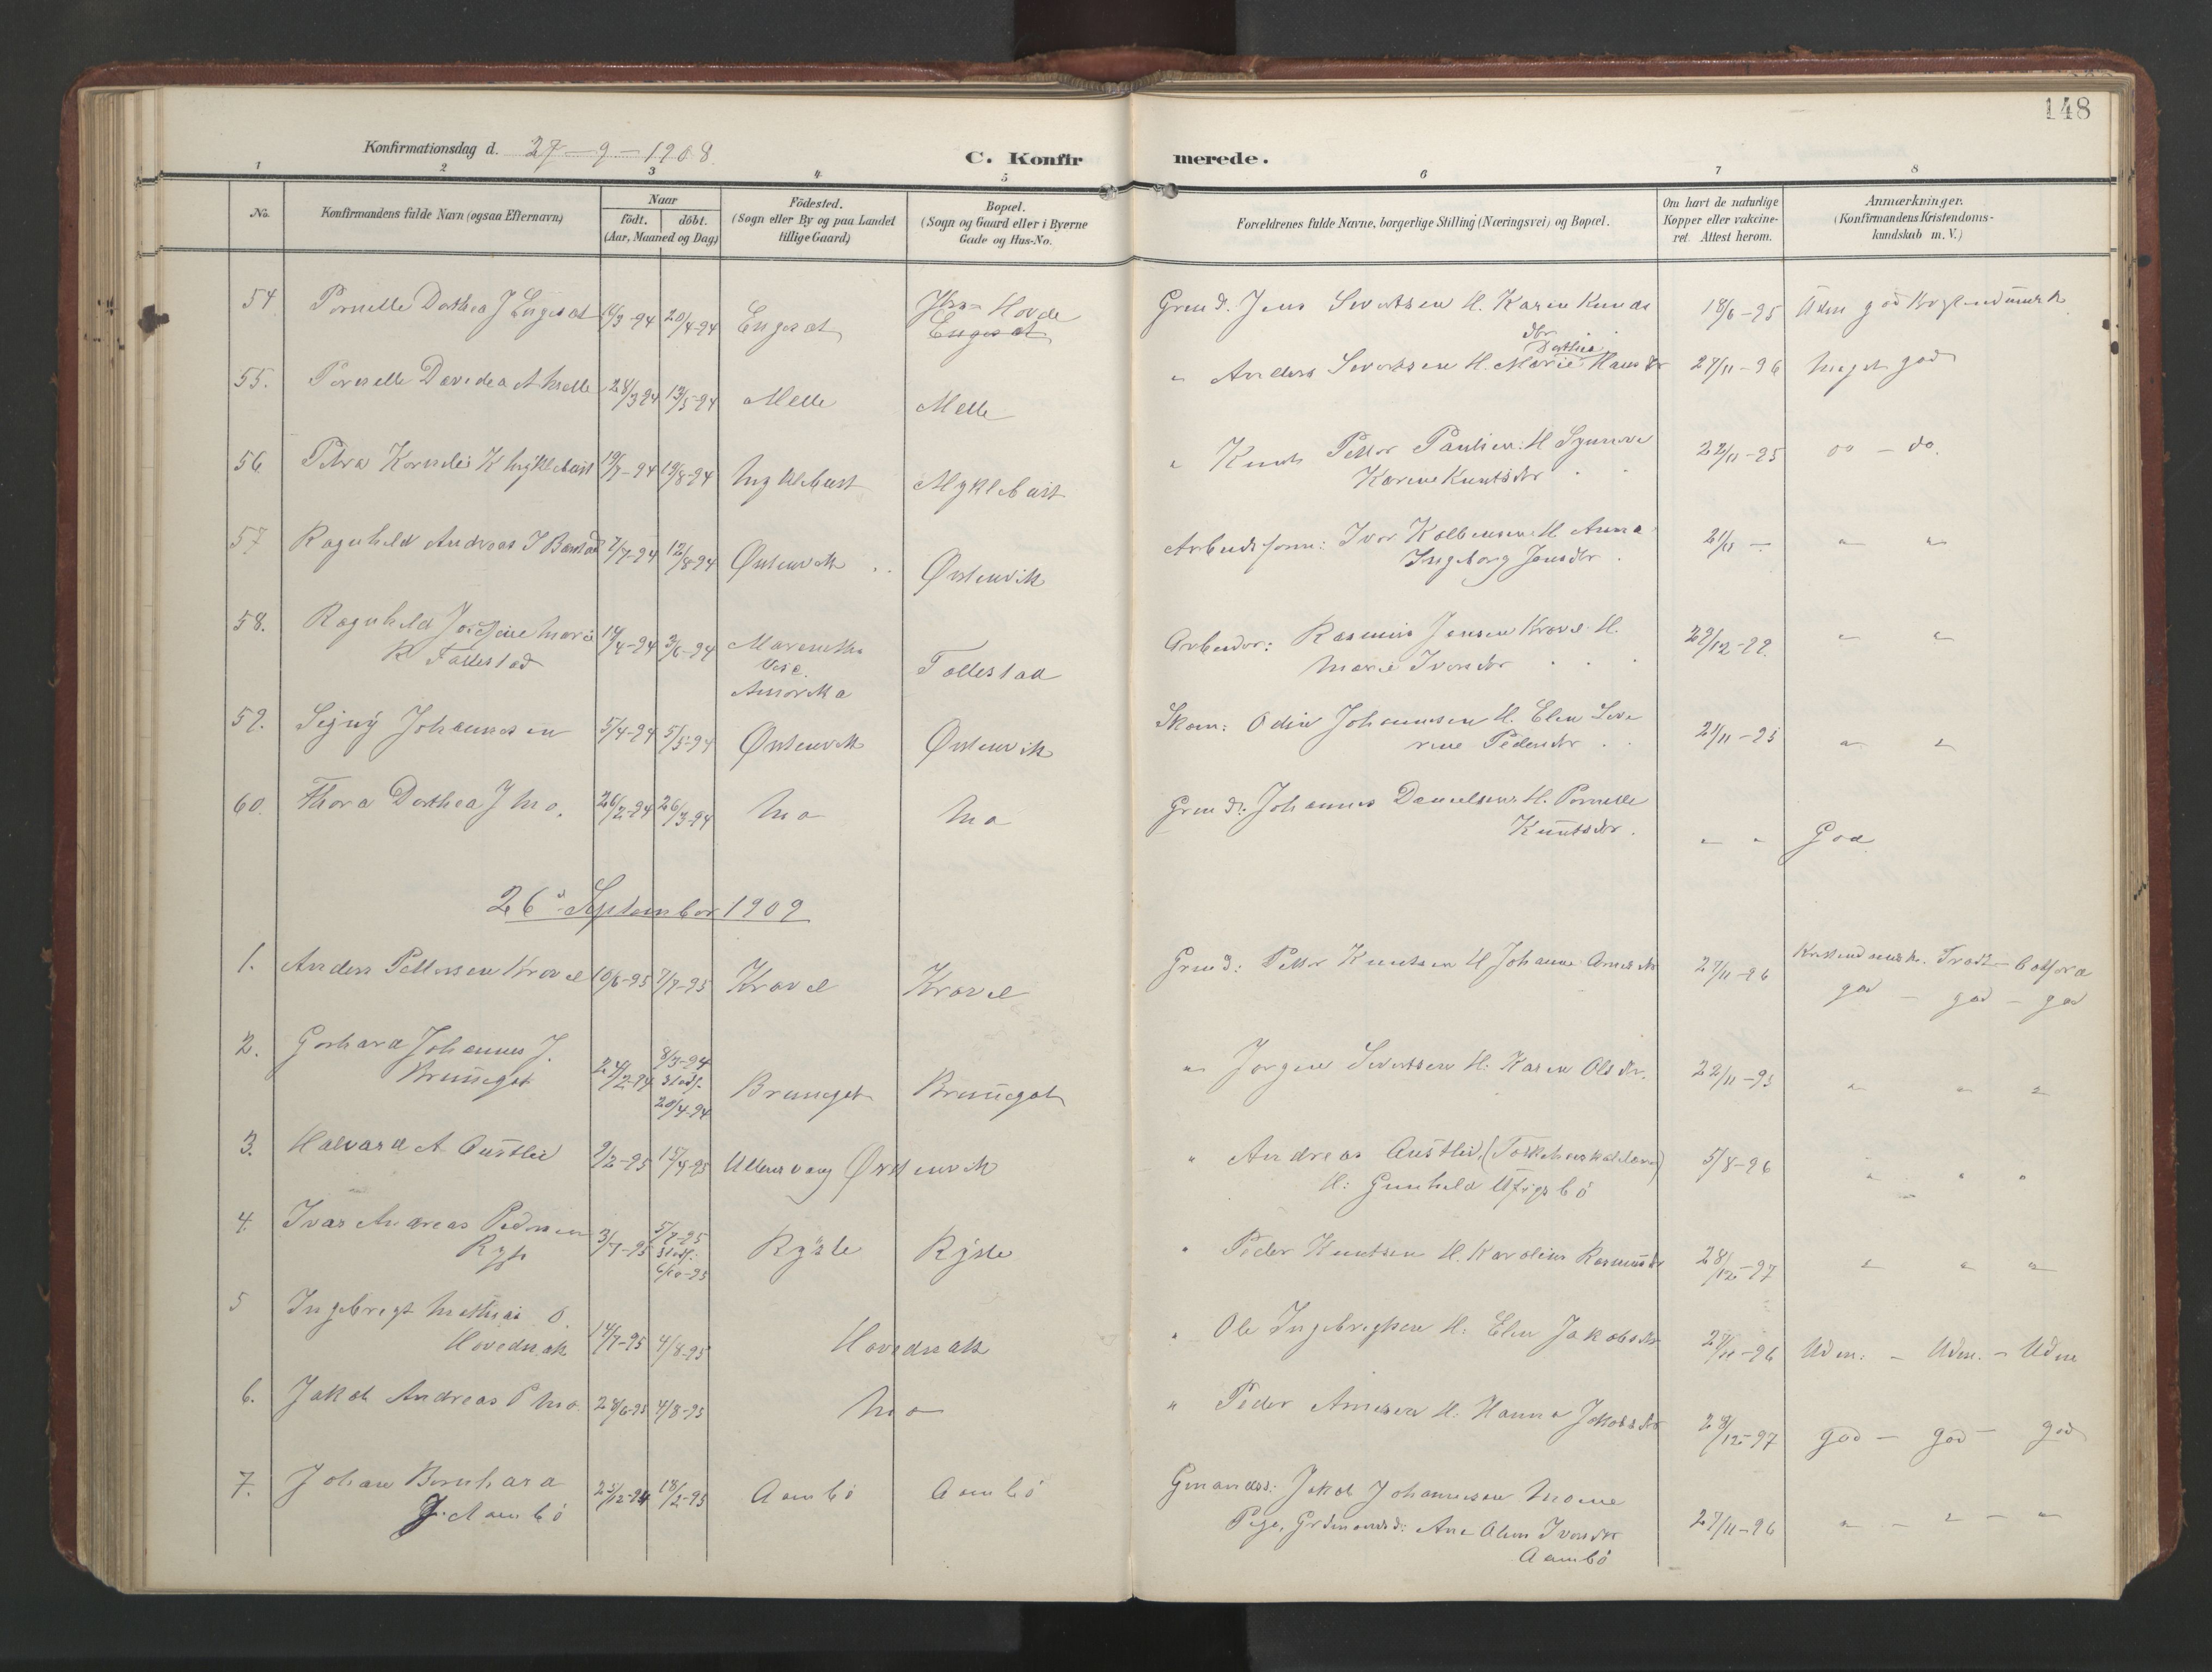 148
Konfirmationsdag d. 27-9-1908.
C. Konfirmerede.
1 2 3 4 5 6 7 8
No.
Konfirmandens fulde Navn (ogsaa Efternavn)
Naar
födt. döbt.
(Aar, Maaned og Dag)
Födested.
(Sogn eller By og paa Landet
tillige Gaard)
Bopæl.
(Sogn og Gaard eller i Byerne
Gade og Hus-No.
Forældrenes fulde Navne, borgerlige Stilling (Næringsvei) og Bopæl.
Om havt de naturlige
Kopper eller vakcine-
ret. Attest herom.
Anmærkninger.
(Konfirmandens Kristendoms-
kundskab m. V.)
54 Pernille Dorthea J Engeset 16/3-94 20/4-94 Engeset Hovde
Engeset
Grmd. Jens Sivertsen H. Karen Knuds
dtr
18/6-95
55. Pernille Davidea A Melle 28/3 94 13/5-94 Melle Melle
Dorthea
" Anders Sivertsen H. Marie Hansdtr 27/11-96 Meget god
56 Petra Kornelie K Myklebust 19/7-94 19/8-94 Myklebust Myklebust
" Knut Petter Paulsen H Synneve
Karine Knutsdtr
22/11-95 do - do.
57 Ragnhild Andrea I Barstad 7/7-94 12/8-94 Ørstenvik Ørstenvik
Arbeidsform: Iver Kolbensen H Anna
Ingeborg Jensdtr
21/11 - " "
58. Ragnhild Josefine Marie
R Follestad
14/4-94 3/6-94 Marinette
Vise.
Amerika
Follestad
Arbeider: Rasmus Jensen Krøvel H.
Marie Iversdtr
29/12-99. " "
59. Signy Johannesen 5/4-94 5/5-94 Ørstenvik Ørstenvik
Skom: Odin Johannesen H. Elen Seve
rine Pedersdtr
21/11-95 " "
60. Thora Dorthea J Mo. 26/2-94 26/3-94 Mo Mo
Grmd: Johannes Danielsen H. Pernille
Knutsdtr.
" " God
26de September 1909
1. Anders Pettersen Krøvel 10/6-95 7/7-95 Krøvel Krøvel
Grmd: Petter Knutsen H Johanne Arnesdtr 27/11-96
god - god - god
2. Gerhard Johannes J.
Brungot
24/2-94 8/3-94
Stadf.
20/4-94
Brungot Brungot
" Jørgen Sivertsen H: Karen Olsdtr. 22/11-95 " " "
3. Halvard A Austlid 9/2-95 15/4-95 Ullensvang Ørstenvik
" Andreas Austlid,
H: Gunhild
5/8-96 " " "
4. Ivar Andreas Pedersen
3/7-95 5/7-95
Stadf:
6/10-95
Ryste Ryste
" Peder Knutsen H. Karoline Rasmusdtr 28/12-97 " " "
5 Ingebrigt Mathias O.
Hovdenak
14/7-95 4/8-95 Hovdenak
" Ole Ingebrigtsen H: Elen Jakobsdtr 27/11-96 Udm. - Udm. - Udm
6. Jakob Andreas P Mo. 28/6-95 4/8-95 Mo
" Peder Arnesen H: Hanna Jakobsdtr 28/12-97 god - god - god
7. Johan Bernhard
J. Aambö
25/12-94 18/2-95 Aambö Aambö
Gmandss: Jakob Johannesen Moene
Pige, Grdmandsd: Ane Oline Iversdtr
Aambö
27/11-96 " - " - "